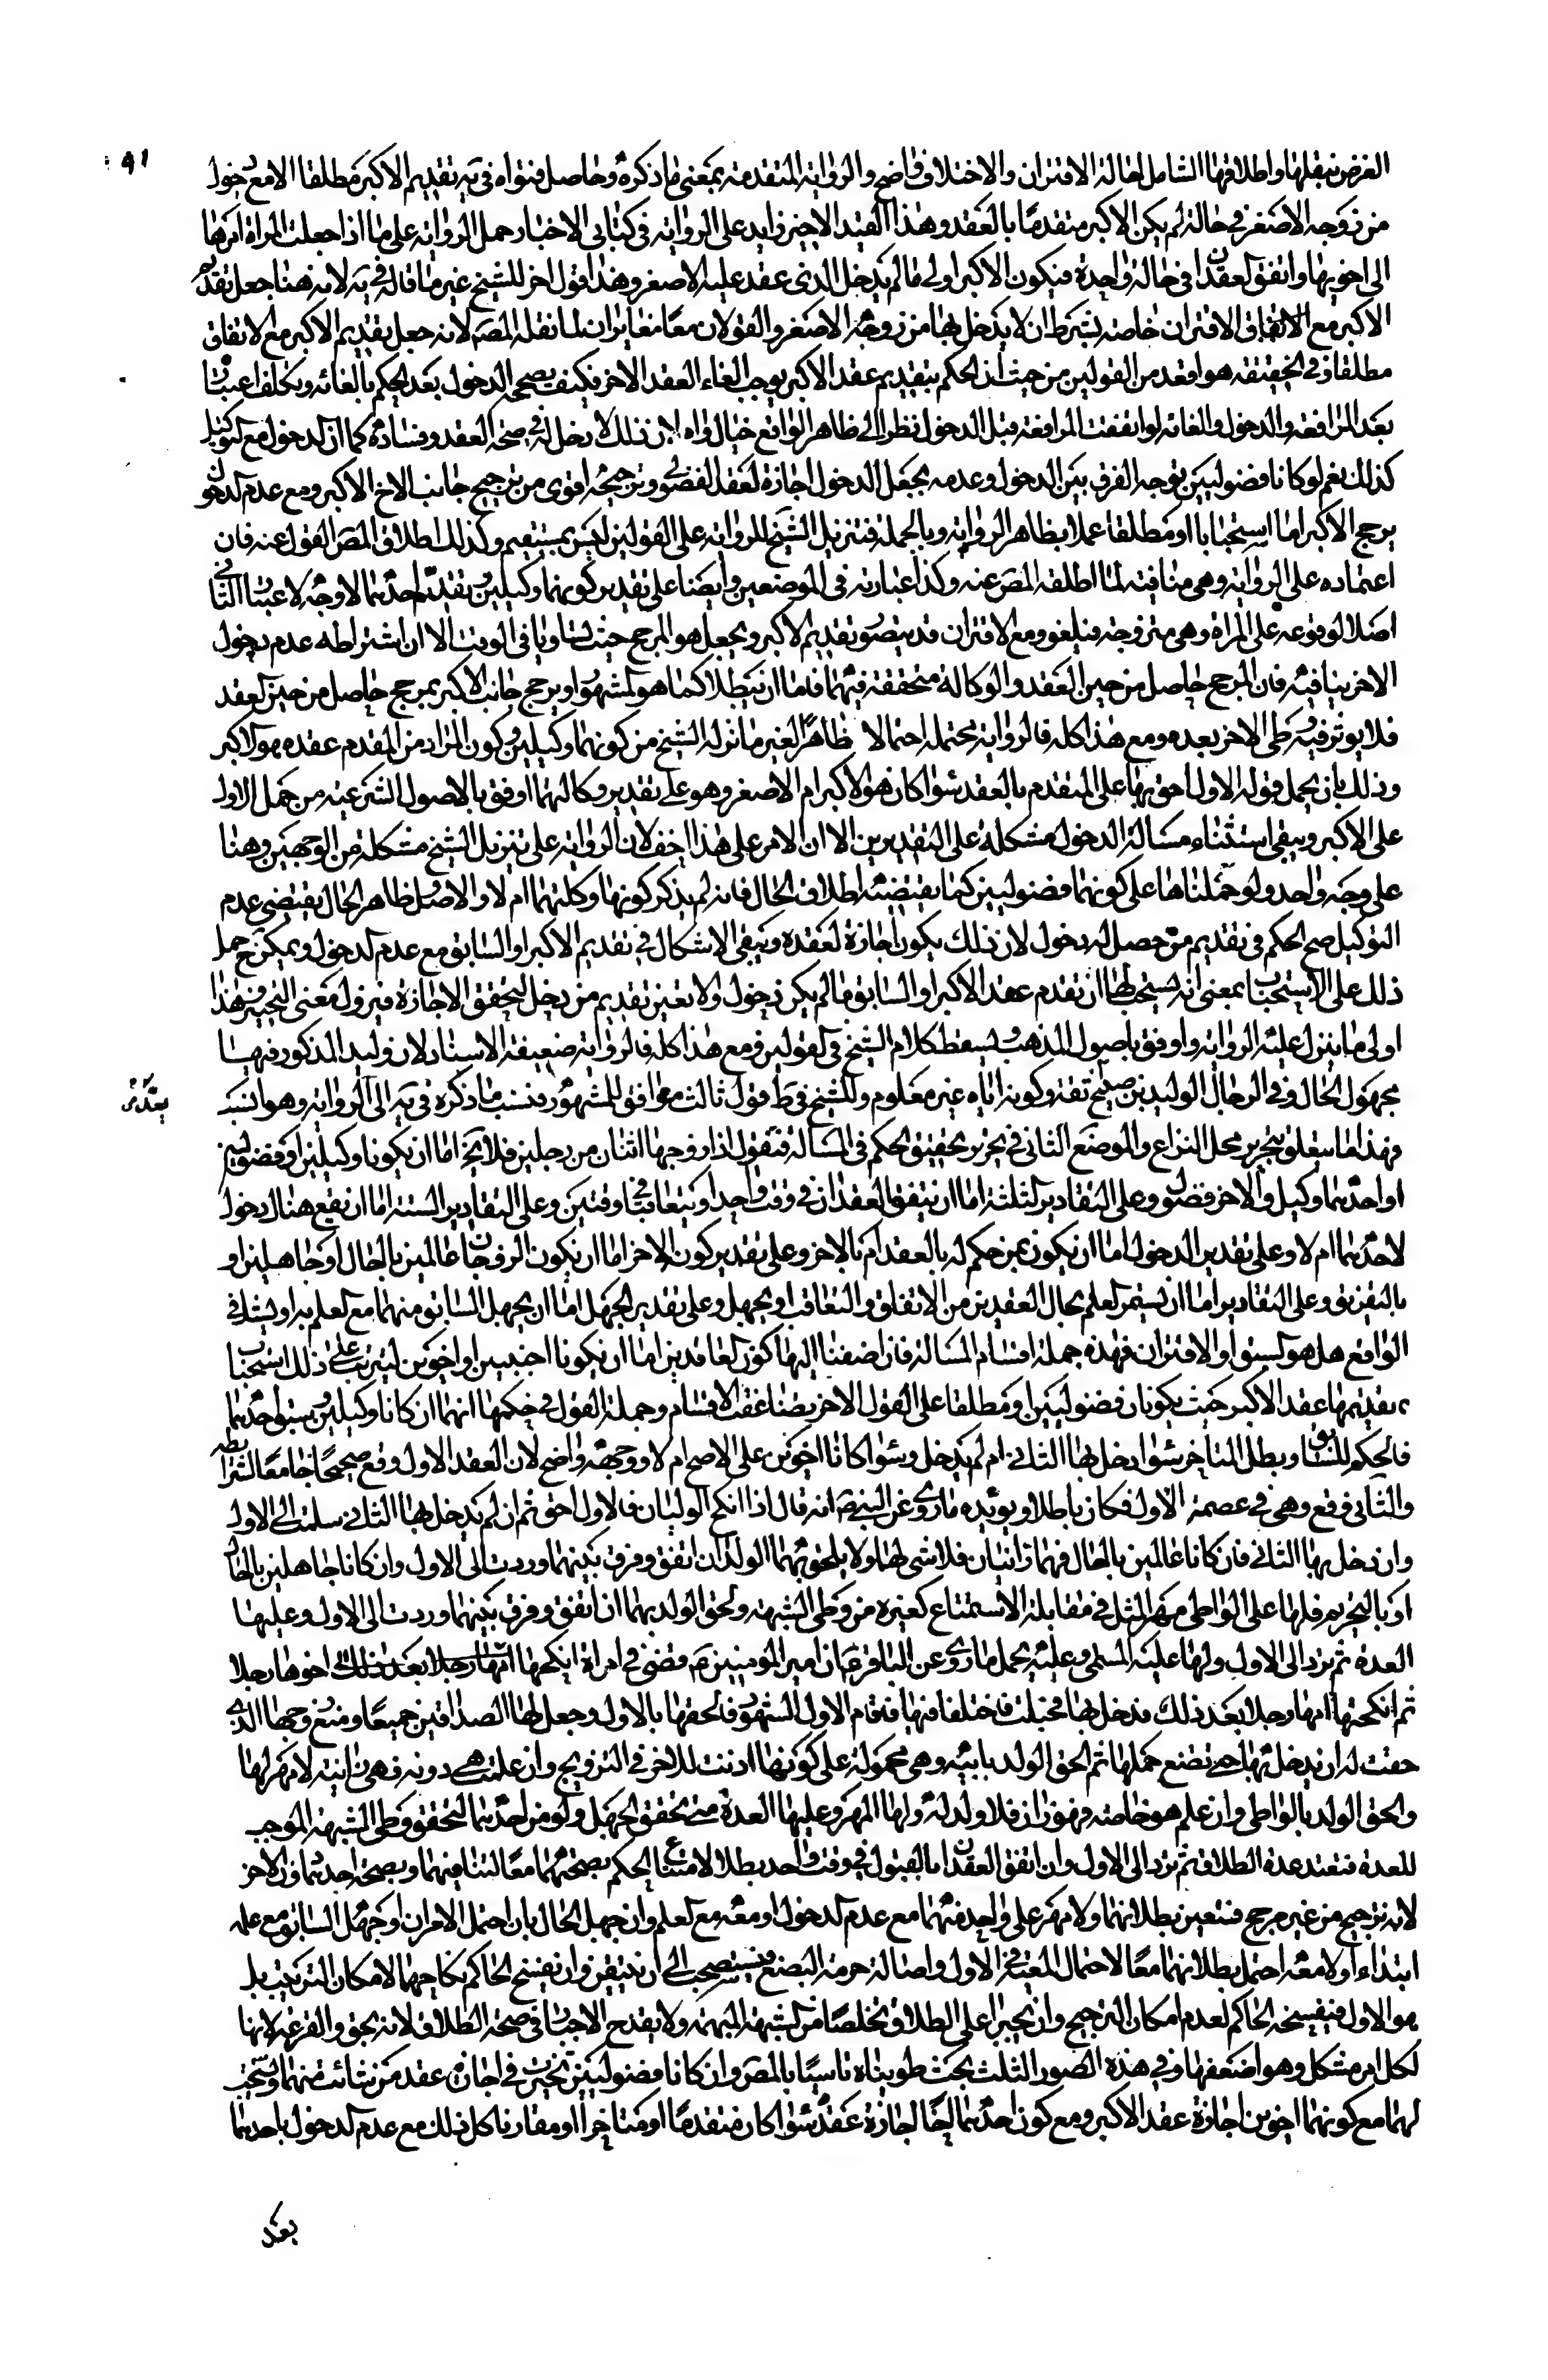 ٩١
الغرض بنقلها واطلاقها الشامل لحالة الاقتران والاختلاف واضح والرواية المتقدمة بمعنى ما ذكره وحاصل فتواه في ية تقديم الاكبر مطلقا الا مع دخول
من زوجه الاصغر في حالة لم يكن الاكبر متقدما بالعقد وهذا القيد الاخير زايد على الرواية في كتابى الاخبار حمل الرواية على ما اذا جعلت المراة امرها
الى اخويها واتفق العقدان في حالة واحدة فيكون الاكبر اولى ما لم يدخل الذى عقد عليه الاصغر وهذا قول اخر للشيخ غير ما قاله في ية لانه هنا جعل تقديم
الاكبر مع الاتفاق الاقتران خاصة بشرط ان لا يدخل بها من زوجه الاصغر والقولان معا مغايران لما نقله المصَ لانه جعل تقديم الاكبر مع الاتفاق
مطلقا وفي الحقيقة هو اقعد من القولين من حيث ان الحكم بتقديم عقد الاكبر يوجب الغاء العقد الاخر فكيف يصحح الدخول بعد الحكم بالغائه وتكلف اعتباره
بعد المرافعة والدخول والغائه لو اتفقت المرافعة قبل الدخول نظرا الى ظاهر الواقع خيال واه لان ذلك لا دخل له في صحة العقد وفساده كما ان الدخول مع التوكيل
كذلك نعم لو كانا فضوليين توجه الفرق بين الدخول وعدمه بجعل الدخول اجازة لعقد الفضولى وترجيحه اقوى من ترجيح جانب الاخ الاكبر ومع عدم الدخول
يرجح الاكبر اما استحبابا او مطلقا عملا بظاهر الرواية وبالجملة فتنزيل الشيخ للرواية على القولين ليس بمستقيم وكذلك اطلاق المصَ القول عنه فان
اعتماده على الرواية وهى منافية لما اطلقه المصَ عنه وكذا عبارته في الموضعين وايضا على تقدير كونهما وكيلين وتقديم احدهما لا وجه لاعتبار الثانى
اصلا لوقوعه على المراة وهى متزوجة فيلغو ومع الاقتران قد يتصور تقديم الاكبر ويجعل هو المرجح حيث تساويا في الوقت الا ان اشتراطه عدم دخول
الاخر ينافيه فان المرجح حاصل من حين العقد والوكالة متحققة فيهما فاما ان يبطلا كما هو المشهور او يرجح جانب الاكبر بمرجح حاصل من حين العقد
فلا يؤثر فيه وطى الاخر بعده ومع هذا كله فالرواية محتملة احتمالا ظاهرا لغير ما نزله الشيخ من كونهما وكيلين وكون المراد من المقدم عقده هو الاكبر
وذلك بان يحمل قوله الاول احق بها على المتقدم بالعقد سواء كان هو الاكبر ام الاصغر وهو على تقدير وكالتهما اوفق بالاصول الشرعية من حمل الاول
على الاكبر ويبقى استثناء مسالة الدخول مشكلة على التقديرين الا ان الامر على هذا اخف لان الرواية على تنزيل الشيخ مشكلة من الوجهين وهنا
على وجه واحد ولو حملناها على كونهما فضوليين كما يقتضيه اطلاق الحال فانه لم يذكر كونها وكلتهما ام لا والاصل وظاهر الحال يقتضى عدم
التوكيل صح الحكم في تقديم من حصل له دخول لان ذلك يكون اجازة لعقده ويبقى الاشكال في تقديم الاكبر او السابق مع عدم الدخول ويمكن حمل
ذلك على الاستحباب بمعنى انه يستحب لها ان تقدم عقد الاكبر او السابق ما لم يكن دخول والا تعين تقديم من دخل لتحقق الاجازة فيزول معنى التخيير وهذا
اولى ما ينزل عليه الرواية واوفق باصول المذهب ويسقط كلام الشيخ في القولين ومع هذا كله فالرواية ضعيفة الاسناد لان وليد المذكور فيها
مجهول الحال وفي الرجال الوليد بن صبيح ثقة وكونه اياه غير معلوم وللشيخ في ط قول ثالث موافق للمشهور ونسب ما ذكره في ية الى الرواية وهو انسب
فهذا ما يتعلق بتحرير محل النزاع والموضع الثانى في تحرير تحقيق الحكم في المسالة فنقول اذا زوجها اثنان من رجلين فلا يخ اما ان يكونا وكيلين او فضوليين
او احدهما وكيل والاخر فضولى وعلى التقادير الثلثة اما ان يتفق العقدان في وقت واحد او يتعاقبا في وقتين وعلى التقادير الستة اما ان يقع هناك دخول
لاحدهما ام لا وعلى تقدير الدخول اما ان يكون بمن حكم له بالعقد ام بالاخر وعلى تقدير كون الاخر اما ان يكون الزوجان عالمين بالحال او جاهلين او
بالتفريق وعلى التقادير اما ان يستمر العلم بحال العقدين من الاتفاق والتعاقب او يجهل وعلى تقدير الجهل اما ان يجهل السابق منهما مع العلم به او يشك في
الواقع هل هو السبق او الاقتران فهذه جملة اقسام المسالة فان اضفنا اليها كون العاقدين اما ان يكونا اجنبيين او اخوين ليترتب على ذلك استحباب
تقديمها عقد الاكبر حيث يكونان فضوليين او مطلقا على القول الاخر تضاعفت الاقسام وجملة القول في حكمها انهما ان كانا وكيلين وسبق احدهما
فالحكم للسابق وبطل المتاخر سواء دخل بها الثانى ام لم يدخل وسواء كانا اخوين على الاصح ام لا ووجهه واضح لان العقد الاول وقع صحيحا جامعا لشرائطه
والثانى وقع وهى في عصمة الاول فكان باطلا ويؤيده ما روى عن النبى صَ انه قال اذا انكح الوليان فالاول احق ثم ان لم يدخل بها الثانى سلمت الى الاول
وان دخل بها الثانى فان كانا عالمين بالحال فهما زانيان فلا شى لها ولا يلحق بهما الولد ان اتفق وفرق بينهما وردت الى الاول وان كانا جاهلين بالحال
او بالتحريم فلها على الواطى مهر المثل في مقابلة الاستمتاع كغيره من وطى الشبهة ولحق الولد بهما ان اتفق وفرق بينهما وردت الى الاول وعليها
العدة ثم ترد الى الاول ولها عليه المسمى وعليه يحمل ما روى عن الباقر عَ ان امير المومنين عَ قضى في امراة انكحها امها رجلا بعد ذلك اخوها رجلا
ثم انكحتها امها رجلا بعد ذلك فدخل بها فحبلت فاختلفا فيها فقام الاول الشهود فالحقها بالاول وجعل لها الصداقين جميعا ومنع زوجها الذى
حقت له ان يدخل بها حتى تضع حملها ثم الحق الولد بابيه وهى محمولة على كونها اذنت للاخر في التزويج وان علمت هى دونه فهى زانية لا مهر لها
والحق الولد بالواطى وان علم هو خاصة فهو زان فلا ولد له ولها المهر وعليها العدة متى تحقق الجهل ولو من احدهما لتحقق وطى الشبهة الموجب
للعدة فتعتد عدة الطلاق ثم ترد الى الاول وان اتفق العقدان بالقبول في وقت واحد بطلا لامتناع الحكم بصحتهما معا لتنافيهما وبصحة احدهما دون الاخر
لانه ترجيح من غير مرجح فتعين بطلانهما ولا مهر على واحد منهما مع عدم الدخول او معه مع العلم وان جهل الحال بان احتمل الامران او جهل السابق مع علمه
ابتداء او لا معه احتمل بطلانهما معا لاحتمال المعية في الاول واصالة حرمة البضع فيستصحب الى ان يتيقن وان يفسخ الحاكم نكاحهما لامكان الترتيب بل
هو الاول فيفسخه الحاكم لعدم امكان الترجيح وان يجبرا على الطلاق تخلصا من الشبهة المبهمة ولا يقدح الاجبار في صحة الطلاق لانه بحق والقرعة لانها
لكل امر مشكل وهو اضعفها وفي هذه الصور الثلث بحث طويناه تاسيا بالمصَ وان كانا فضوليين تخيرت في اجازة عقد من شائت منهما ويستحب
لها مع كونهما اخوين اجازة عقد الاكبر ومع كون احدهما اخا اجازة عقده سواء كان متقدما او متاخرا او مقارنا كل ذلك مع عدم الدخول باحدهما
بعد